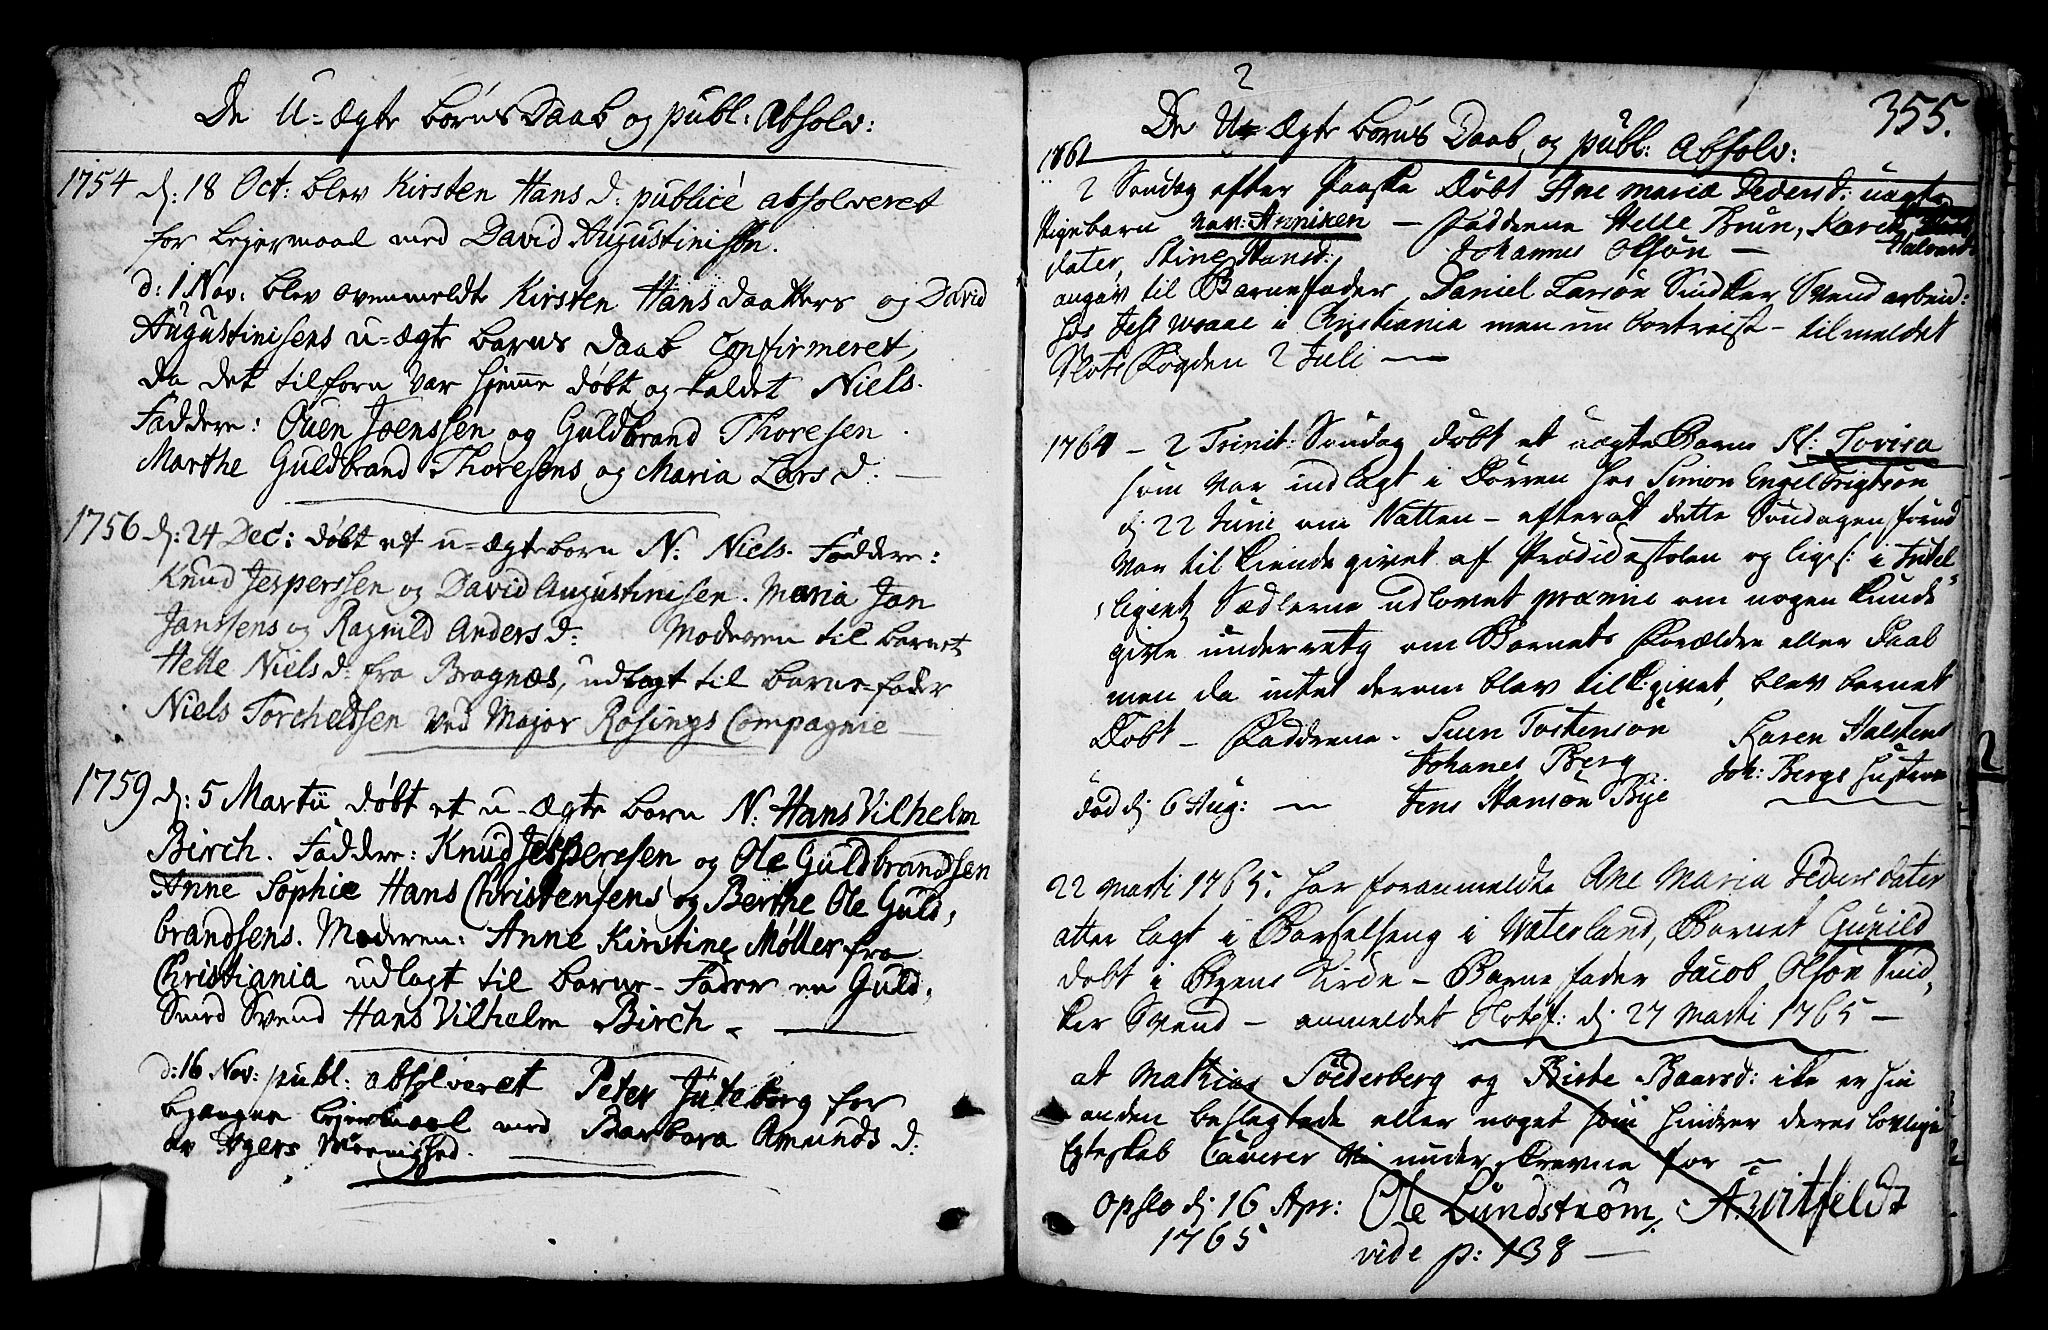 De U-ægte børns Daab og publ: Absolv:
1754 d: 18 Oct: blev Kirsten Hans d: publicè absolveret
for Lejermaal med David Augustinissøn.
d: 1 Nov: blev ovenmeldte Kirsten Hans daatters og David
Augustinisens u-ægte barns daab Confirmeret,
da det tilforn var hjemme døbt og kaldet Niels.
Faddere: Ouen Joenssen og Guldbrand Thoresen.
Marthe Guldbrand Thoresens og Maria Lars d: —
1756 d: 24 Dec: døbt et u-ægte barn N: Niels. Faddere:
Knud Jesperssen og David Augustinisen. Maria Jan
Janssens og Ragnild Anders d: Moderen til barnet
Helle Niels d: fra Bragnæs, udlagt til barne-fader
Niels Torcheldsen ved Major Rosings Compagnie —
1759 d: 5 Martii døbt et u-ægte barn N: Hans Vilhelm
Birch. Faddere: Knud Jesperssen og Ole Guldbrandsen
Anne Sophie Hans Christensens og Berthe Ole Guld,
brandsens. Moderen: Anne Kirstine Møller fra
Christiania udlagt til barne-Fader en Guld,
Smed Svend Hans Vilhelm Birch. —
d: 16 Nov: publ: absolveret Peter Juteborg for
begangne Lejermaal med Barbara Amunds d:
av Agers Meenighed.
355.
2
De U-Ægte børns Daab, og publ: Absolv:
1761
2 Søndag efter Paaske Døbt Ane Maria Peders d: uægte
Pigebarn nav: Anniken — Fadderne Helle Brun, Karen
Halvors
dater, Stine Hansd: Johannes Olsøn —
angav til Barnefader Daniel Larsøn Snidker Svend arbeid:
hos i Christiania men nu bortreist — tilmeldet
Slots Fogden 2 Juli —
1764 — 2 Trinit: Søndag døbt et uægte Barn N: Lovisa
som var indlagt i Dørren hos Simon Engelbrigtsøn
d: 22 Juni om Natten — efterat dette Søndagen forud
var til kiende givet af Prædikestolen og liges: i Intel
ligentz Sædlerne udlovet præmie om nogen kunde
give underretg om Barnets Forældre eller Daab
men da intet derom blev tilk:givet, blev barnet
Døbt — Fadderne. Suen Tostensøn Karen Halstens
Johanes Berg Joh: Bergs hustrue
død d: 6 Aug: — Jens Hansøn Bye —
22 Marti 1765. har foranmeldte Ane Maria Pedersdater
atter lagt i Barselseng i Waterland, Barnet Gunild
døbt i Agers Kirke — Barne fader Jacob Olsøn Snid,
ker Svend — anmeldet Slotsf: d: 27 Marti 1765 —
at Mathias Söederberg og Birte Baarsd: ike er hin
anden beslegtede eller noget som hindrer deres lovlige
Egteskab Caverer Vi underskrevne for —
Opslo d: 16 Apr: Ole Lundstrøm. A: Witfeldt
1765
vide p: 138 —
2